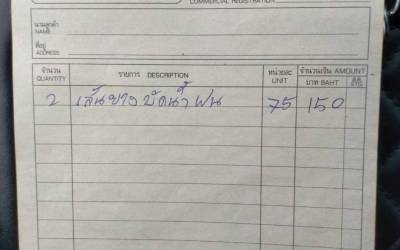 COMMERCIAL REGISTRATION
นามลูกค้า
NAME
ที่อยู่
ADDRESS
จำนวน QUANTITY รายการ DESCRIPTION หน่วยละ UNIT จำนวนเงิน AMOUNT
บาท BAHT ส.ต. STG.
2 เส้นยางปัดน้ำฝน 75 150